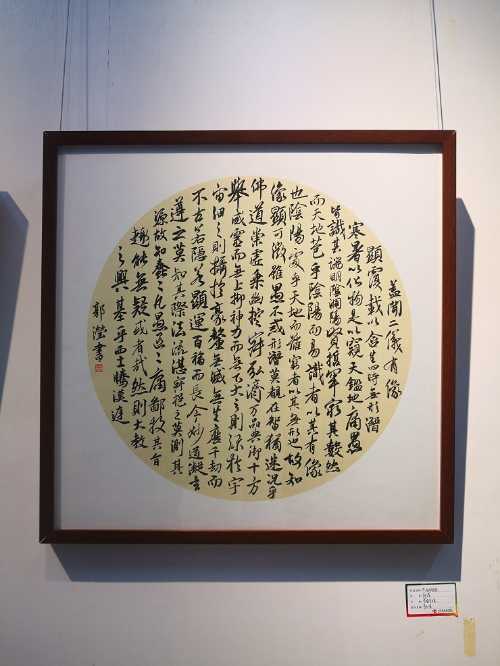 蓋聞二儀有像
顯覆載以含生四時無形潛
寒暑以化物是以窺天鑑地庸愚
皆識其端明陰洞陽賢哲罕窮其數然
而天地苞乎陰陽而易識者以其有像
也陰陽處乎天地而難窮者以其無形也故知
像顯可徵雖愚不惑形潛莫覩在智猶迷況乎
佛道崇虛乘幽控寂弘濟萬品典御十方
舉威靈而無上抑神力而無下大之則彌於宇
宙細之則攝於豪釐無滅無生歷千劫而
不古若隱若顯運百福而長今妙道凝玄
遵之莫知其際法流湛寂挹之莫測其
源故知蠢蠢凡愚區區庸鄙投其旨
趣能無疑或者哉然則大教
之興基乎西土騰漢庭
郭瀅書